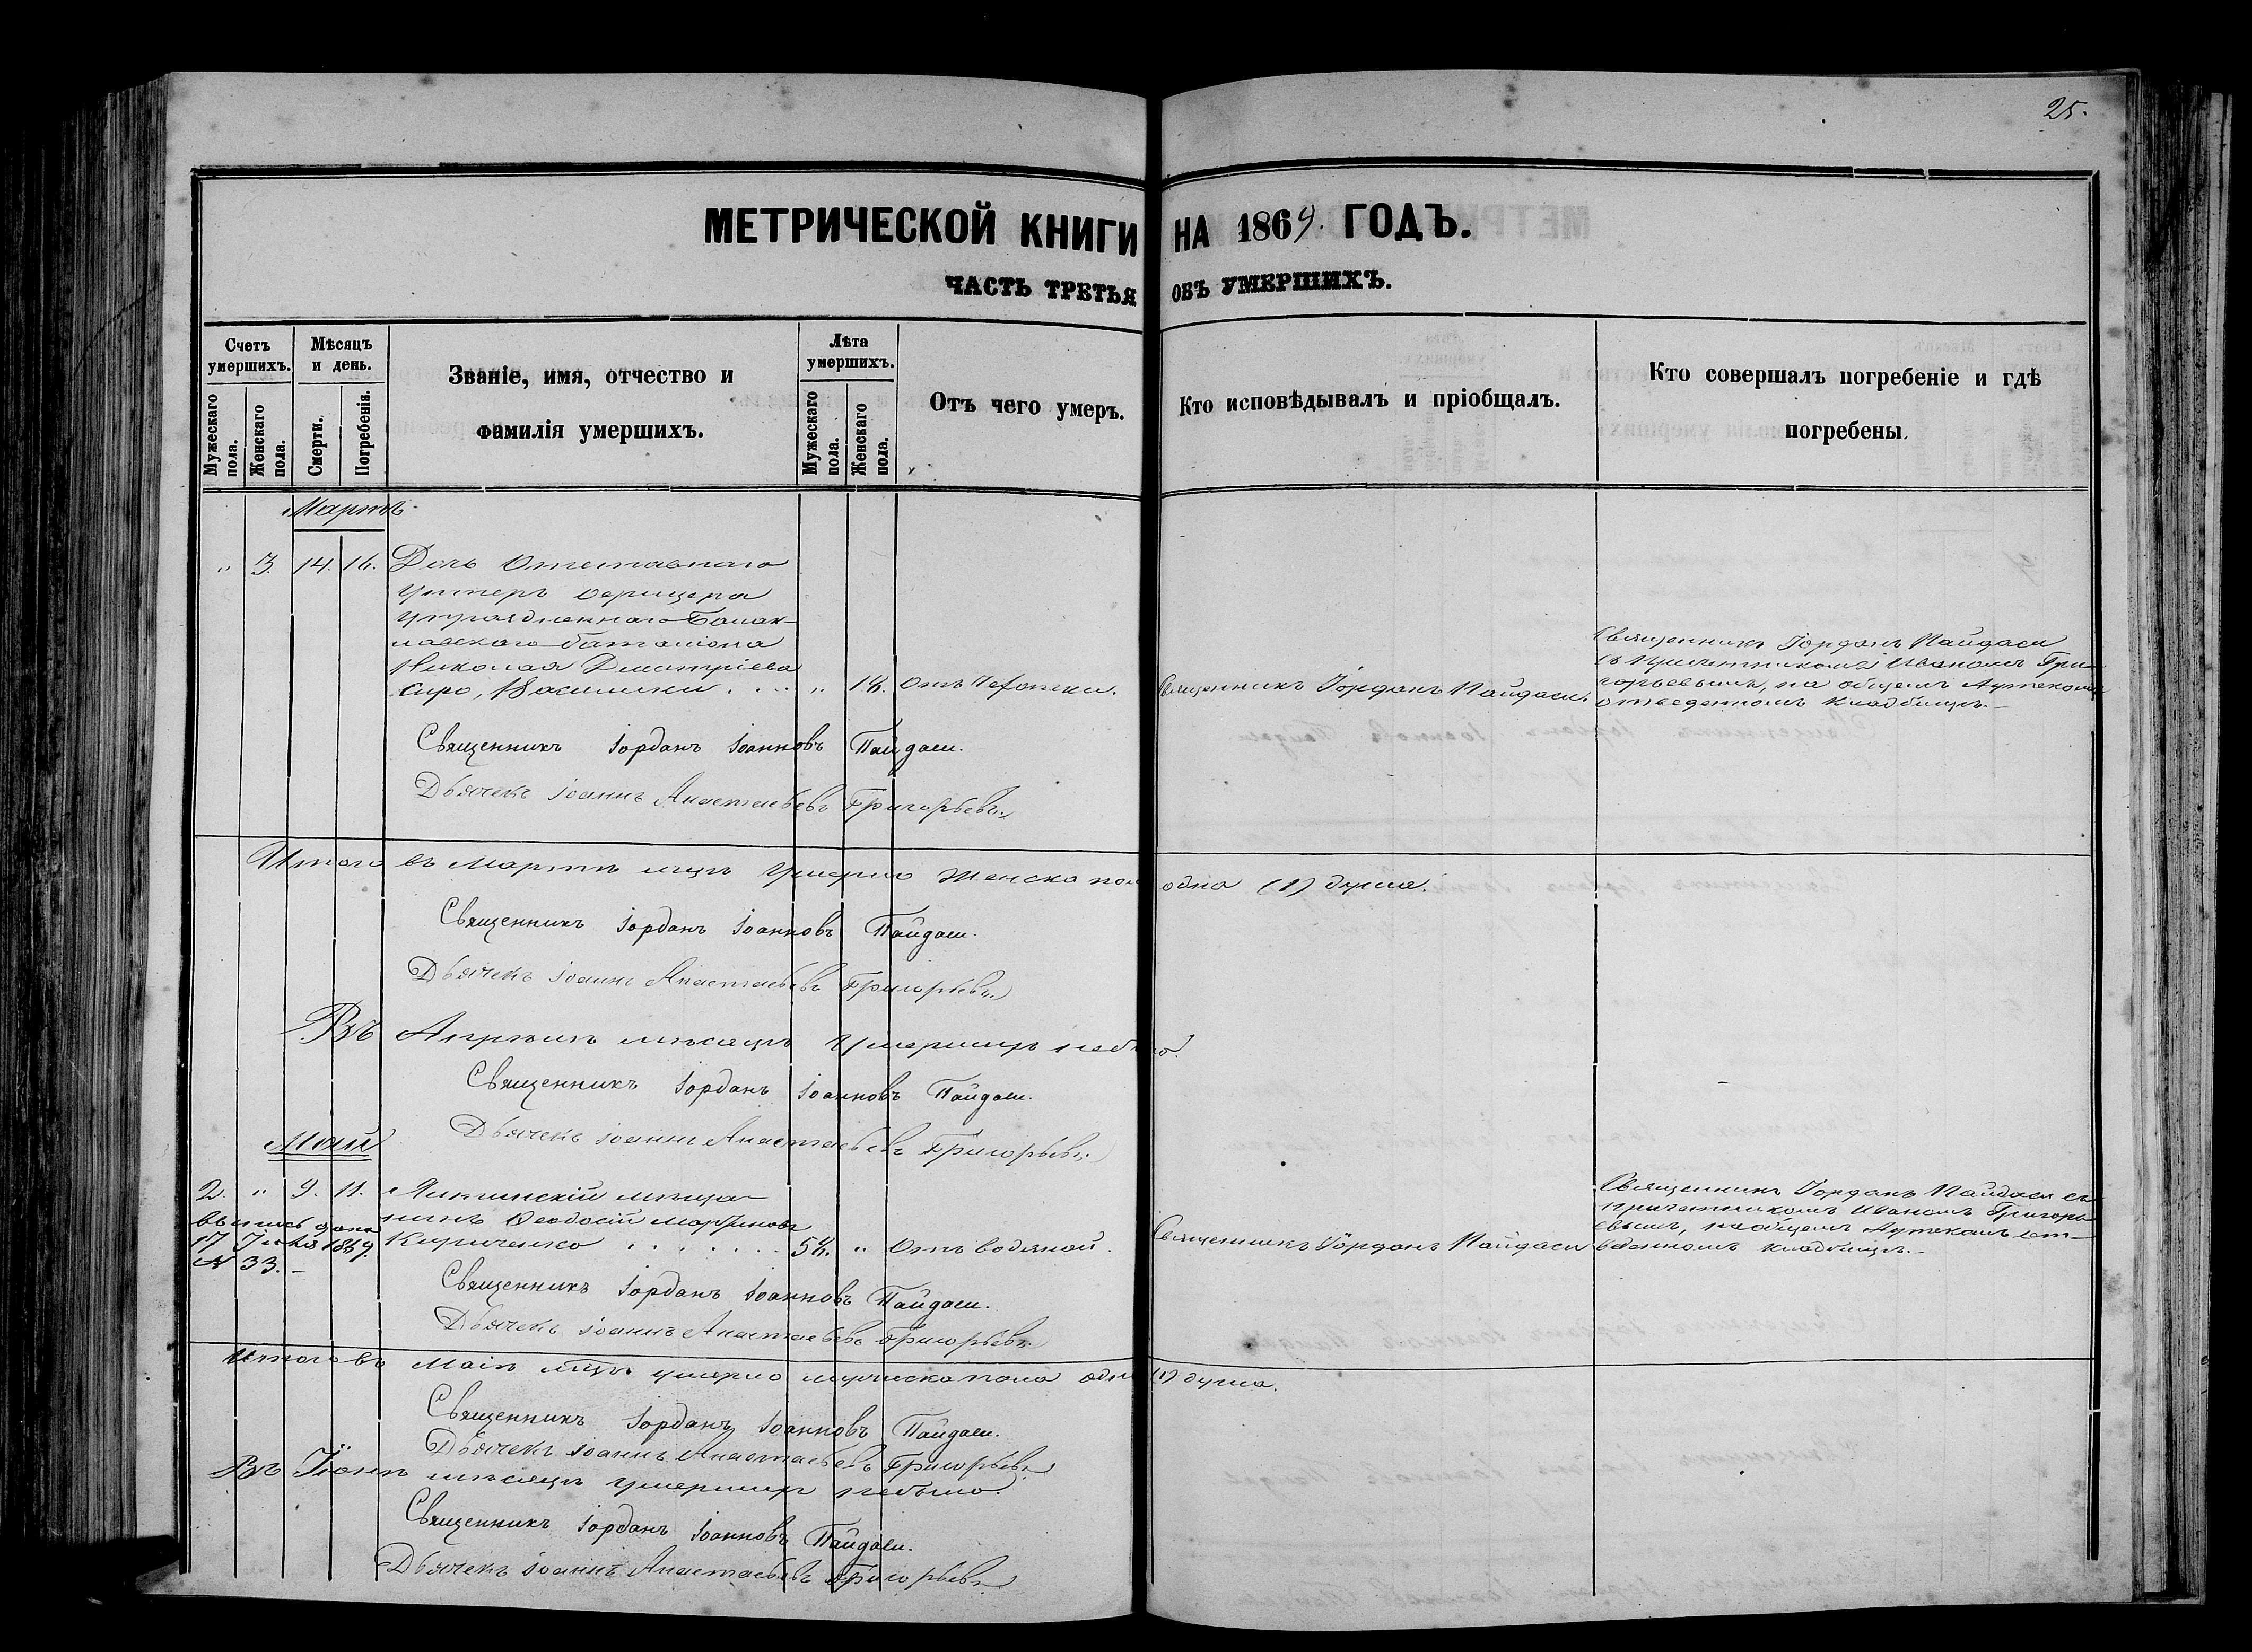 25.
МЕТРИЧЕСКОЙ КНИГИ НА 1869. ГОДЪ.
ЧАСТЬ ТРЕТЬЯ ОБЪ УМЕРШИХЪ.
Счетъ умершихъ.
Мужескаго пола.
Женскаго пола.
Мѣсяцъ и день.
Смерти.
Погребенія.
Званіе, имя, отчество и
фамилія умершихъ.
Лѣта умершихъ.
Мужескаго пола.
Женскаго пола.
Отъ чего умеръ.
Кто исповѣдывалъ и пріобщалъ.
Кто совершалъ погребеніе и гдѣ
погребены.
Мартъ
" 3. 14. 16. Дочь Отставнаго
Унтеръ Офицера
Упраздненнаго Балак-
лавскаго баталіона
Николая Дмитріева
" Отъ Чехотки. Священникъ Іорданъ Пайдаси.
Священникъ Іорданъ Пайдаси
съ причетникомъ Иваномъ Гри-
горьевымъ, на общемъ
отведенномъ кладбищѣ.
Священникъ Іорданъ Іоанновъ Пайдаси.
Дьячекъ Іоаннъ Анастасьевъ Григорьевъ.
Итого въ Мартѣ мцѣ Умерло Женска пола одна (1) душа.
Священникъ Іорданъ Іоанновъ Пайдаси.
Дьячекъ Іоаннъ Анастасьевъ Григорьевъ.
Въ Апрѣлѣ мѣсяцѣ Умершихъ небыло.
Священникъ Іорданъ Іоанновъ Пайдаси.
Дьячекъ Іоаннъ Анастасьевъ Григорьевъ.
Май
2. " 9. 11. Ялтинскій мѣща-
нинъ Ѳеодосій Мартиновъ
Кириченко 54. " Отъ водяной. Священникъ Іорданъ Пайдаси
выпись дана
17 Іюля 1869.
№ 33.
Священникъ Іорданъ Пайдаси съ
причетникомъ Иваномъ Григорь-
евымъ, на общемъ от-
веденномъ кладбищѣ.
Священникъ Іорданъ Іоанновъ Пайдаси.
Дьячекъ Іоаннъ Анастасьевъ Григорьевъ.
Итого въ Маіѣ мцѣ умерло мужска пола одна (1) душа.
Священникъ Іорданъ Іоанновъ Пайдаси.
Дьячекъ Іоаннъ Анастасьевъ Григорьевъ.
Въ Іюнѣ мѣсяцѣ умершихъ небыло.
Священникъ Іорданъ Іоанновъ Пайдаси.
Дьячекъ Іоаннъ Анастасьевъ Григорьевъ.